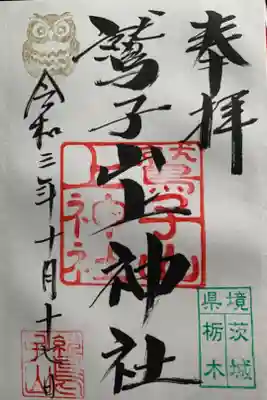 奉拝
鷲子山上神社
鷲子山上神社
令和三年十月十七日
境茨城
県栃木